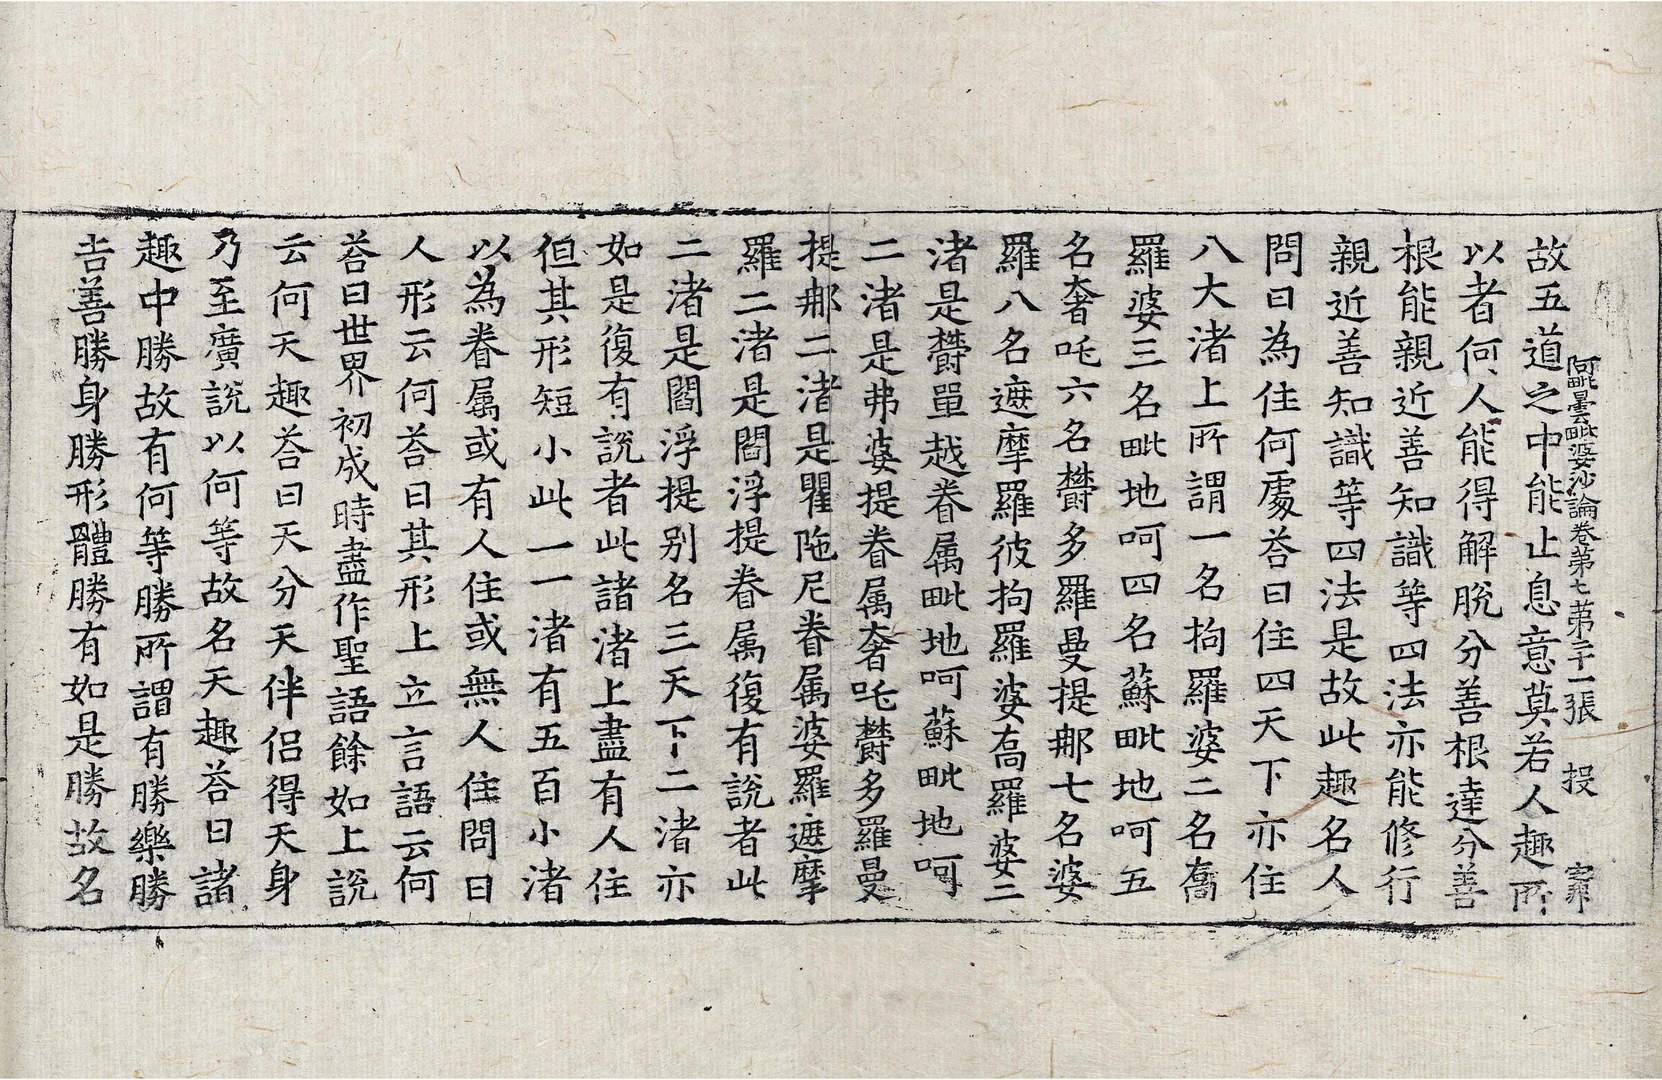 阿毗曇毗婆沙論卷第七 第三十一張 投
故五道之中能止息意莫若人趣所
以者何人能得解脫分善根達分善
根能親近善知識等四法亦能修行
親近善知識等四法是故此趣名人
問曰為住何處荅曰住四天下亦住
八大渚上所謂一名拘羅婆二名喬
羅婆三名毗地呵四名蘇毗地呵五
名奢吒六名欝多羅曼提那七名婆
羅八名遮摩羅彼拘羅婆高羅婆二
渚是欝單越眷属毗地呵蘇毗地呵
二渚是弗婆提眷属奢吒欝多羅曼
提那二渚是瞿陁尼眷属婆羅遮摩
羅二渚是閻浮提眷属復有說者此
二渚是閻浮提别名三天下二渚亦
如是復有說者此諸渚上盡有人住
但其形短小此一一渚有五百小渚
以為眷属或有人住或無人住問曰
人形云何荅曰其形上立言語云何
荅曰世界初成時盡作聖語餘如上說
云何天趣荅曰天分天伴侣得天身
乃至廣說以何等故名天趣荅曰諸
趣中勝故有何等勝所謂有勝樂勝
吉善勝身勝形體勝有如是勝故名